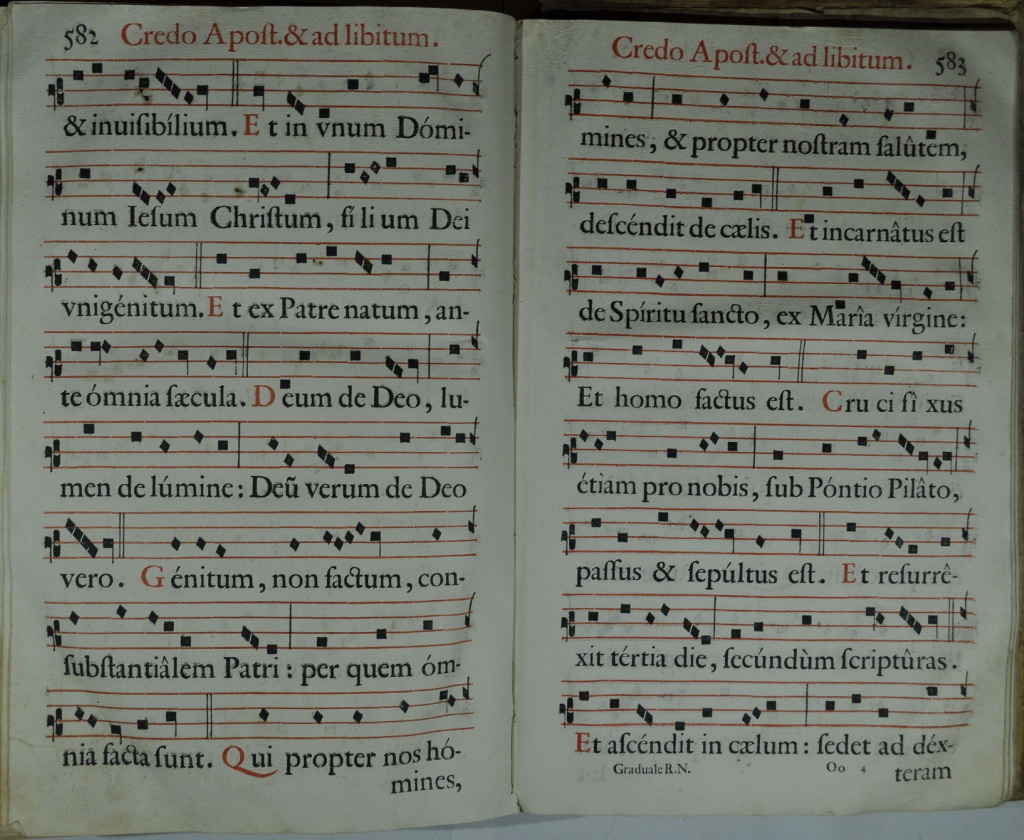 582 Credo Apoſt.& ad libitum.
& inuiſibílium. E t in vnum Dómi-
num Ieſum Chriſtum, fi li um Dei
vnigénitum. E t ex Patre natum, an-
te ómnia ſæcula. D eum de Deo, lu-
men de lúmine: Deũ verum de Deo
vero. G énitum, non factum, con-
ſubſtantiâlem Patri: per quem óm-
nia facta ſunt. Qui propter nos hó-
mines,
Credo Apoſt.& ad libitum. 583
mines, & propter noſtram ſalûtem,
deſcéndit de cælis. Et incarnâtus eſt
de Spíritu ſancto, ex Marîa vírgine:
Et homo factus eſt. Cru ci fi xus
étiam pro nobis, ſub Póntio Pilâto,
paſſus & ſepúltus eſt. Et reſurrê-
xit tértia die, ſecúndùm ſcriptûras.
Et aſcéndit in cælum: ſedet ad déx-
Graduale R.N. Oo 4 teram